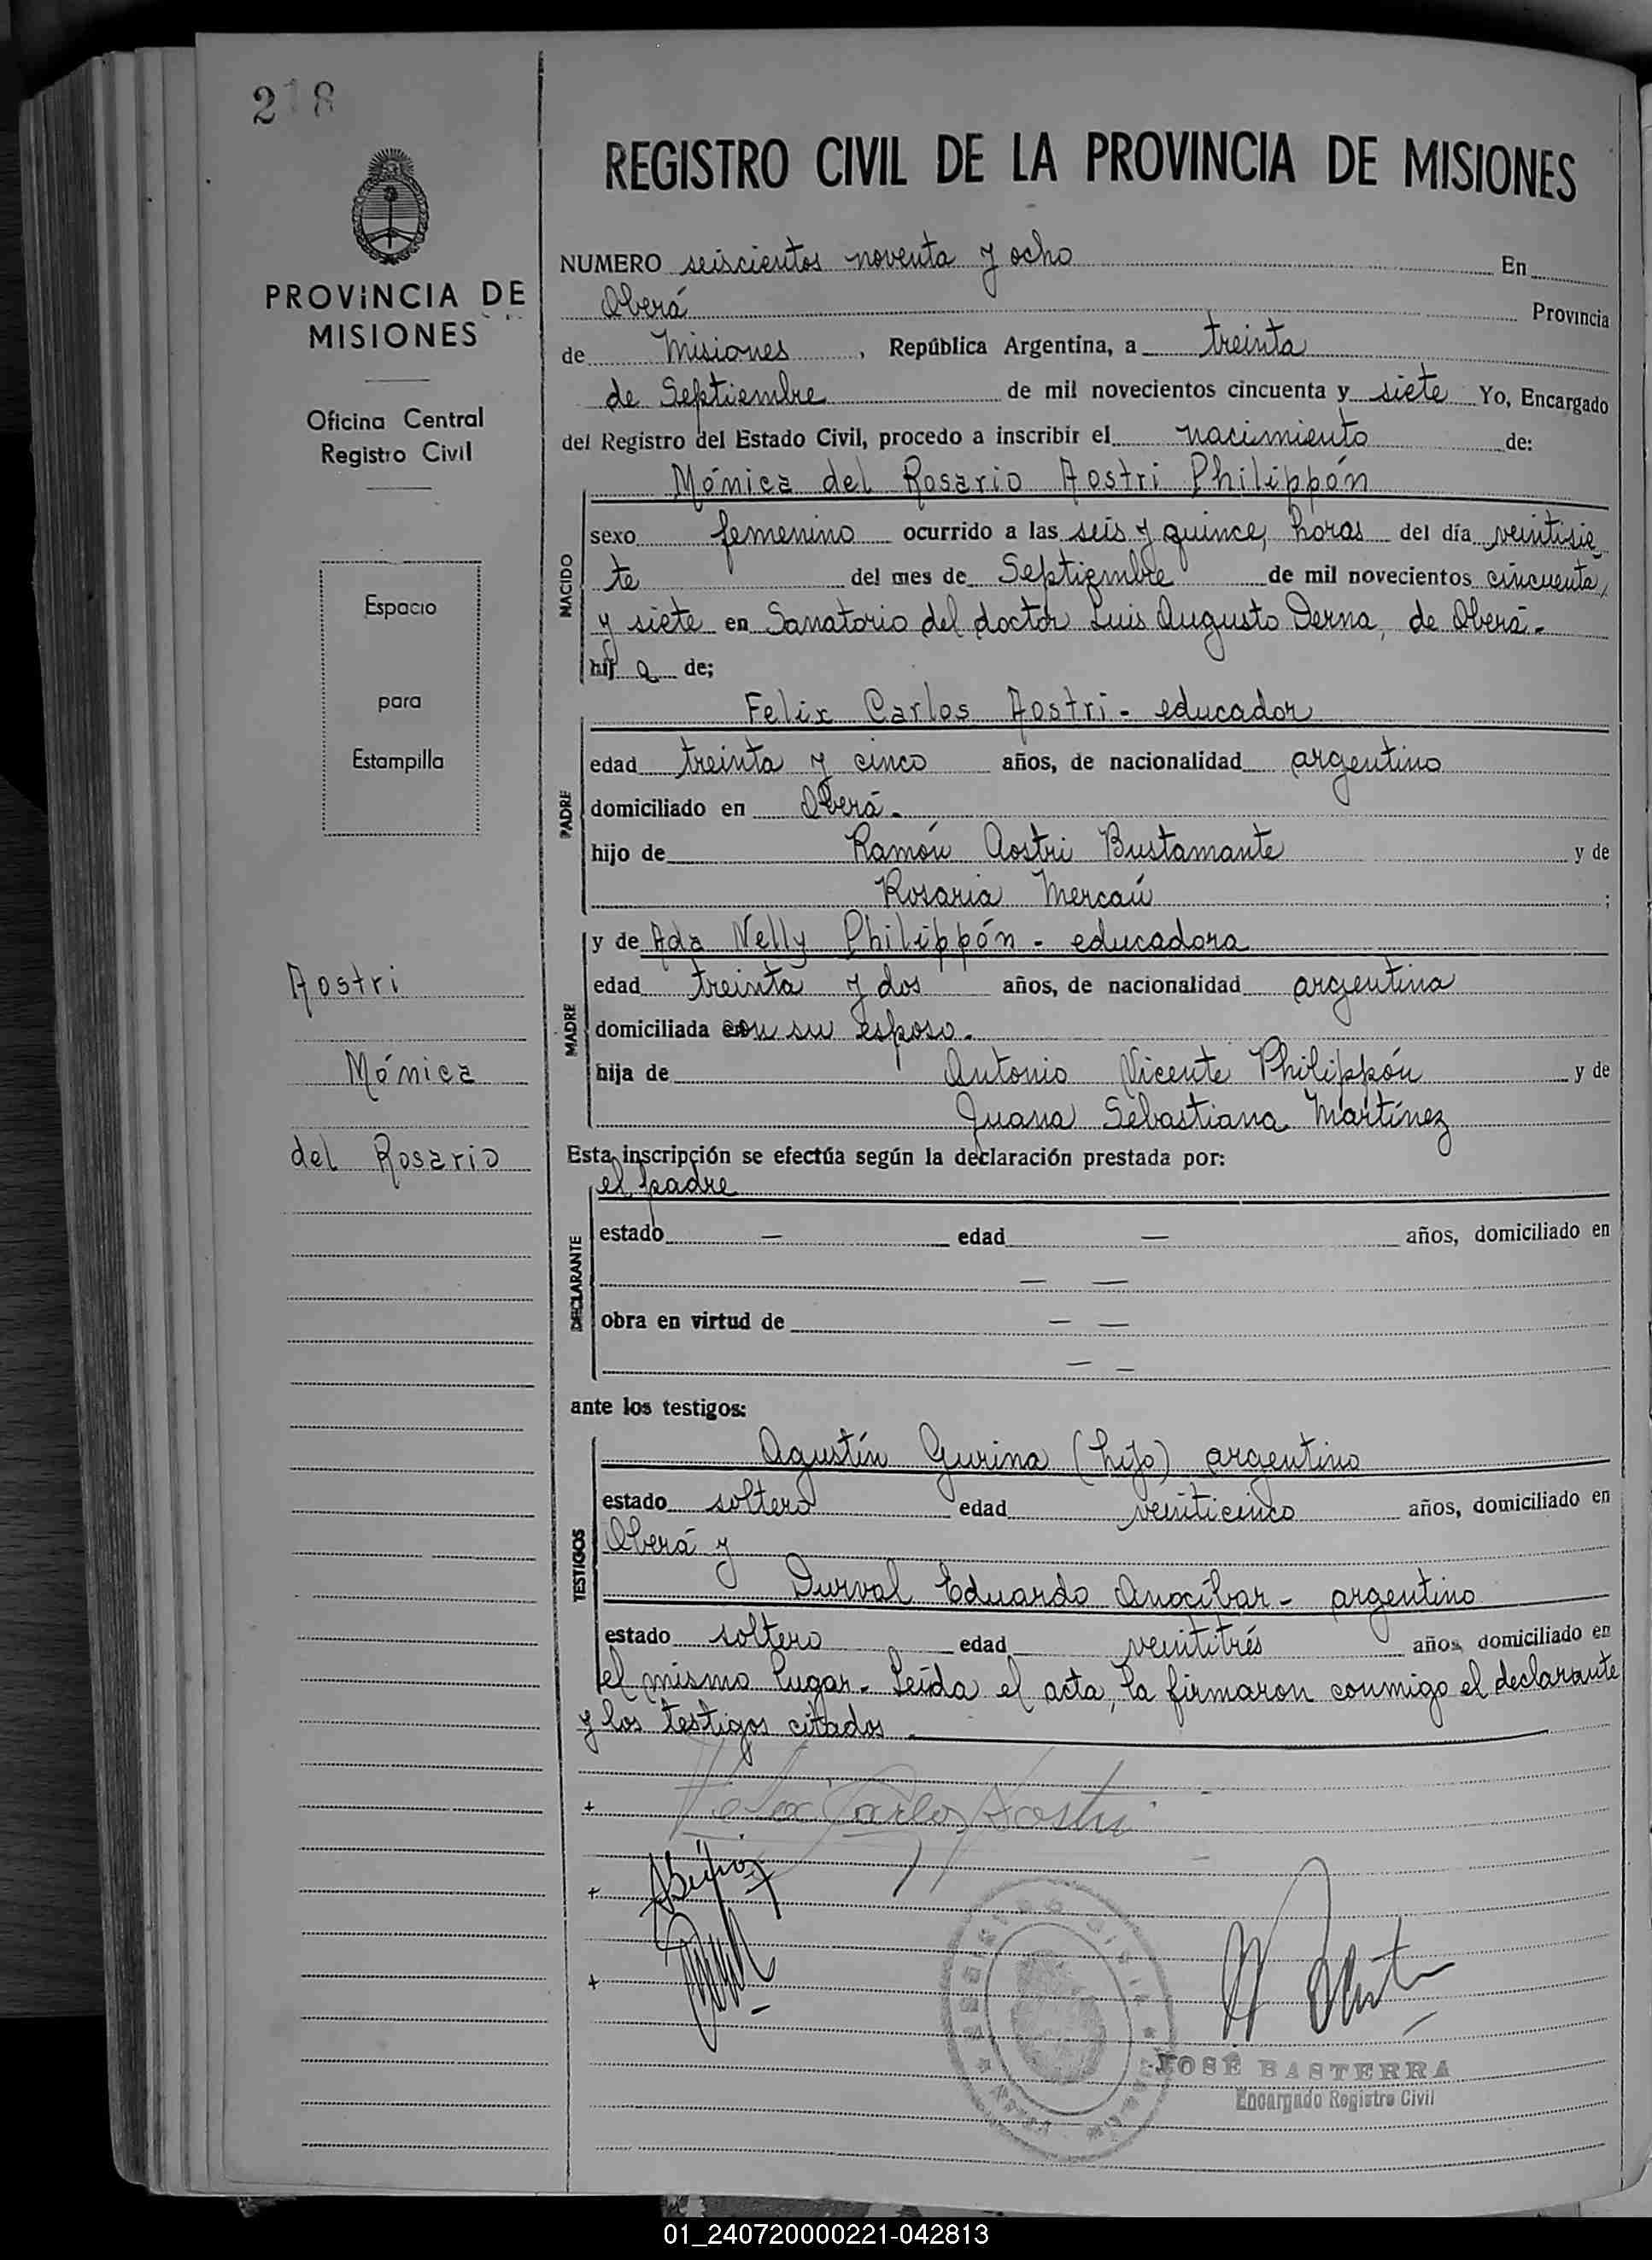 218
PROVINCIA DE
MISIONES
Oficina Central
Registro Civil
Espacio
para
Estampilla
Aostri
Mónica
del Rosario
REGISTRO CIVIL DE LA PROVINCIA DE MISIONES
NUMERO seiscientos noventa y ocho En
Oberá Provincia
de Misiones, República Argentina, a treinta
de Septiembre de mil novecientos cincuenta y siete Yo, Encargado
del Registro del Estado Civil, procedo a inscribir el nacimiento de:
Mónica del Rosario Aostri Philippón
NACIDO
sexo femenino ocurrido a las seis y quince, horas del día veintisie
te del mes de Septiembre de mil novecientos cincuenta
y siete en Sanatorio del doctor Luis Augusto Derna, de Oberá.-
hij a de;
Felix Carlos Aostri - educador
PADRE
edad treinta y cinco años, de nacionalidad argentino
domiciliado en Oberá.-
hijo de Ramón Aostri Bustamante y de
Rosaria Mercaú ;
MADRE
y de Ada Nelly Philippón - educadora
edad treinta y dos años, de nacionalidad argentina
domiciliada con su esposo.-
hija de Antonio Vicente Philippón y de
Juana Sebastiana Martínez
Esta inscripción se efectúa según la declaración prestada por:
el padre
DECLARANTE
estado — edad — años, domiciliado en
— —
obra en virtud de — —
— —
ante los testigos:
Agustín Gurina (hijo) argentino
TESTIGOS
estado soltero edad veinticinco años, domiciliado en
Oberá y
Durval Eduardo Anocíbar - argentino
estado soltero edad veintitrés años, domiciliado en
el mismo lugar.- Leída el acta, la firmaron conmigo el declarante
y los testigos citados
Felix Carlos Aostri
JOSÉ BASTERRA
Encargado Registro Civil
01_240720000221-042813